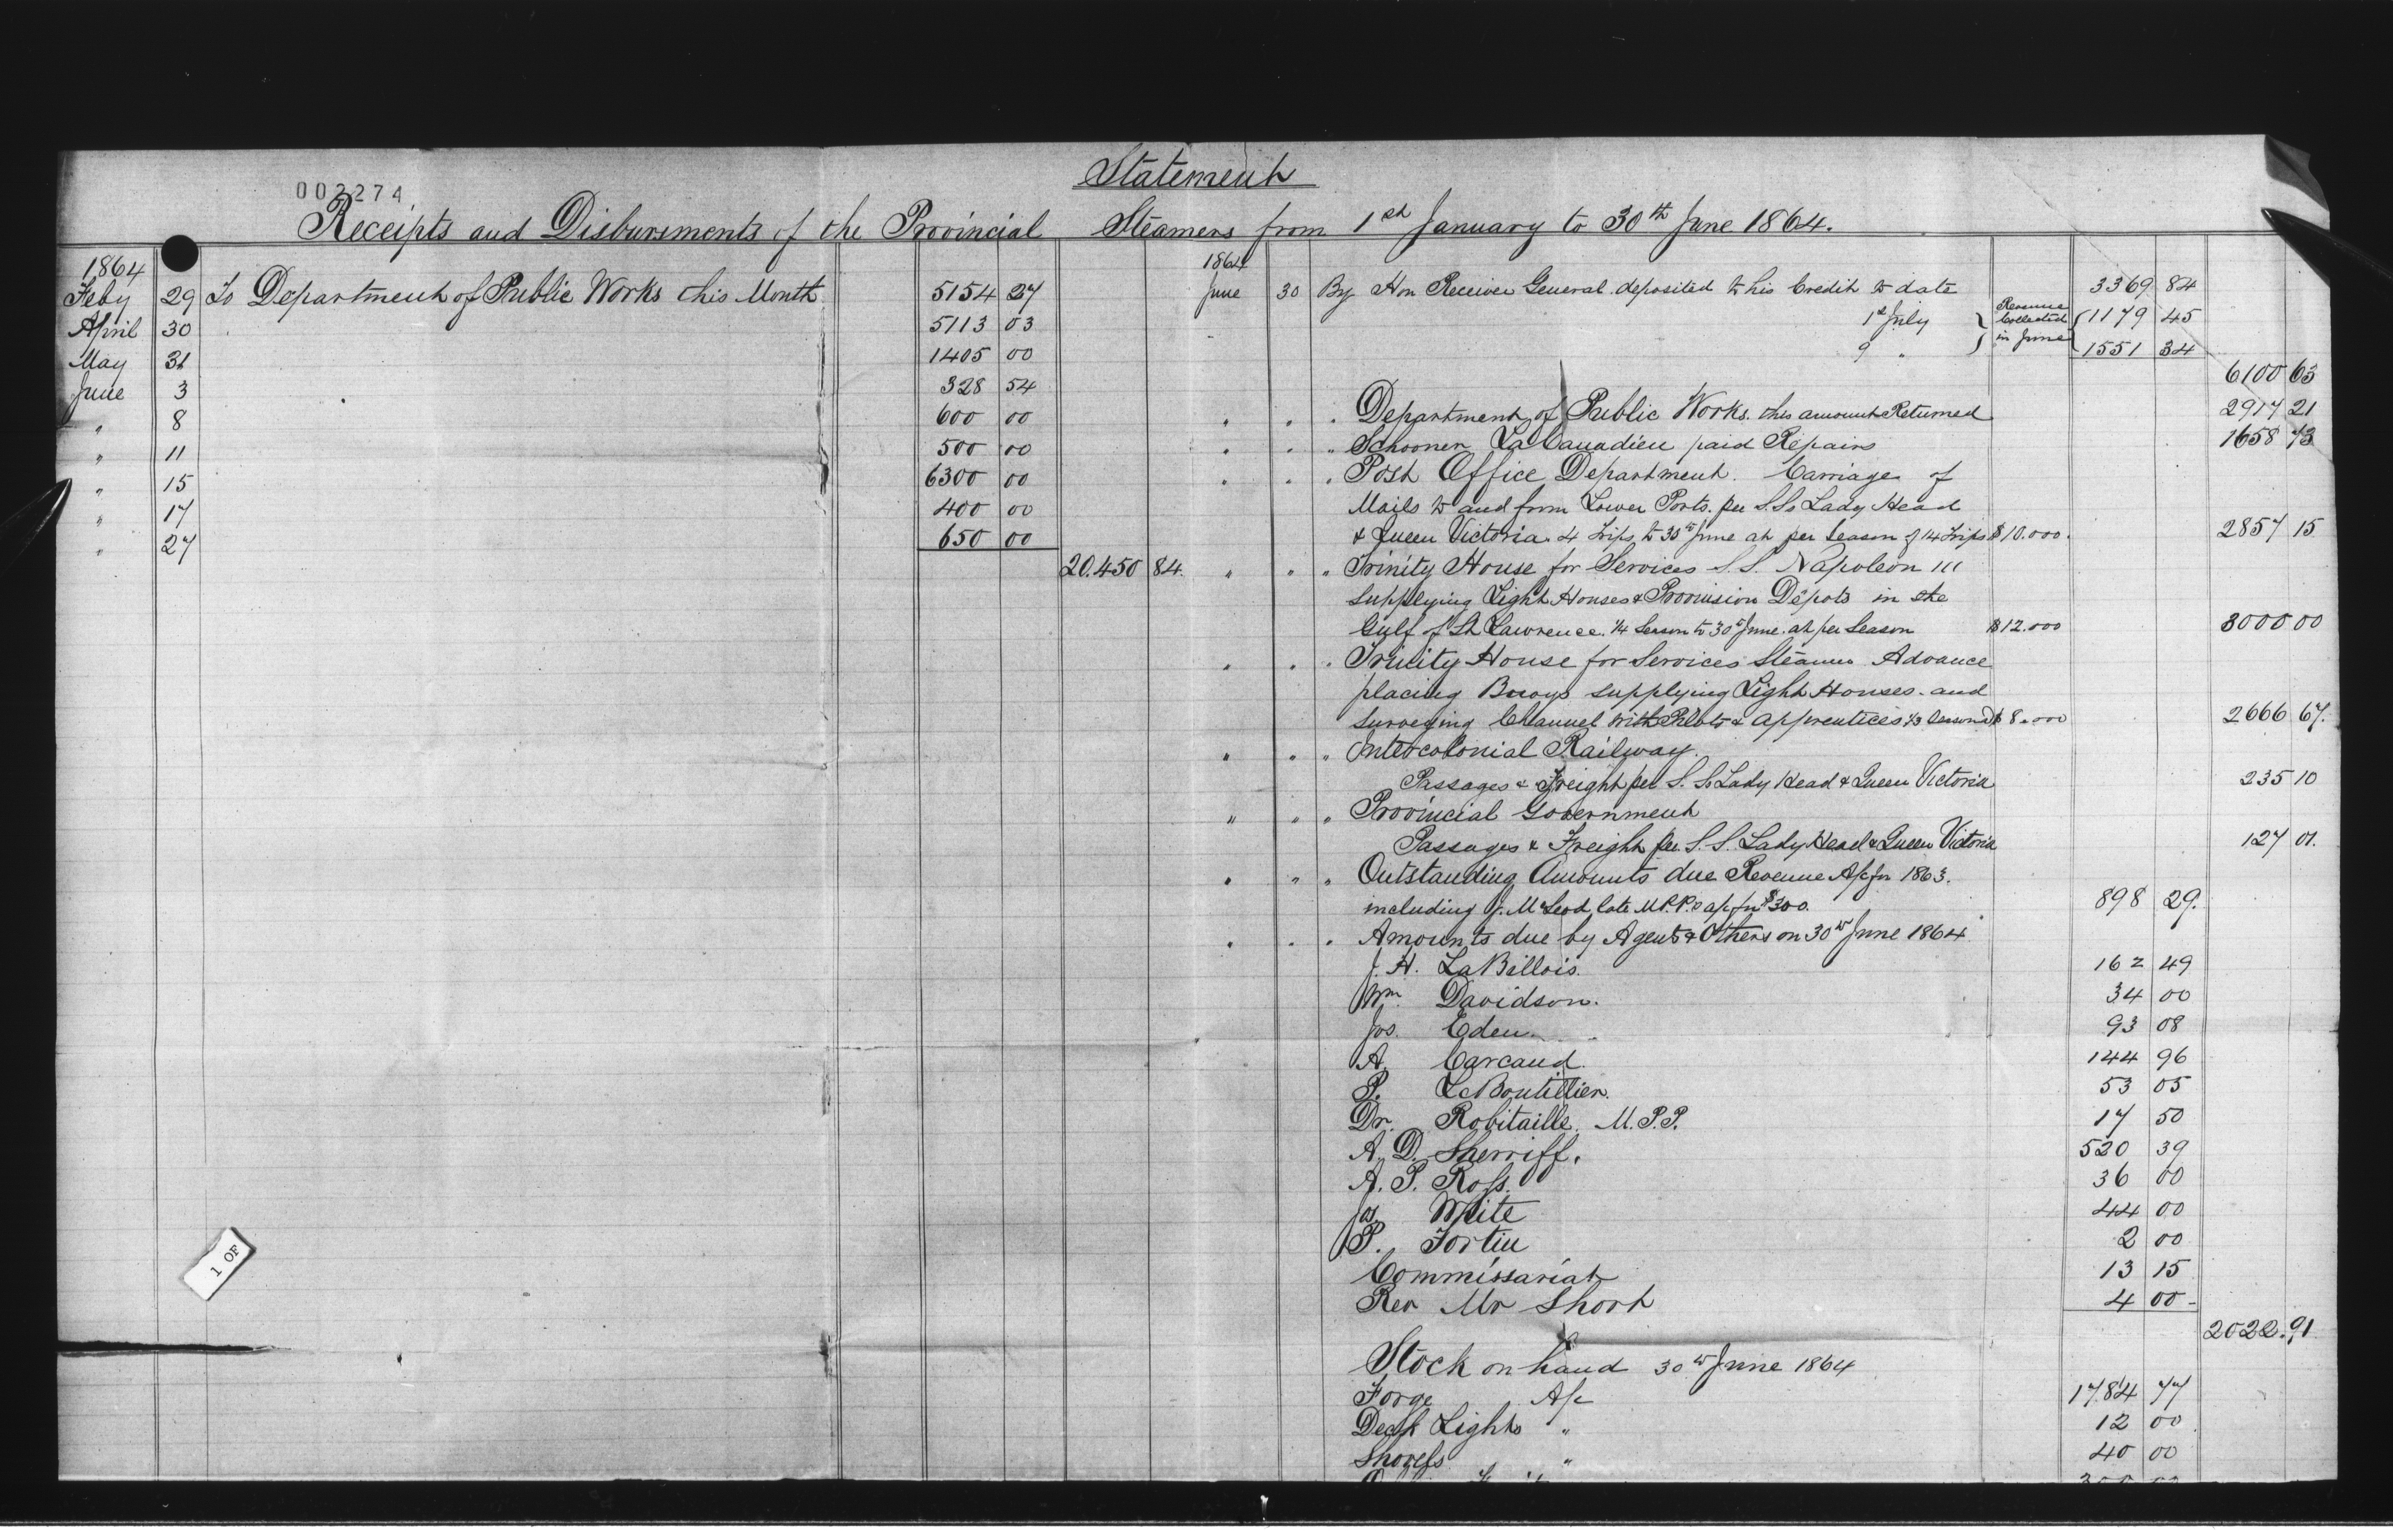 Statement
002274
Receipts and Disbursments of the Provincial Steamers from 1st January to 30th June 1864.
1864
Feby 29 To Department of Public Works this Month 5154 27
April 30 5113 03
May 31 1405 00
June 3 328 54
" 8 600 00
" 11 500 00
" 15 6300 00
" 17 400 00
" 27 650 00
20.450 84.
1864
June 30 By Hon Receiver General deposited to his Credit to date 3369 84
1st July } Revenue Collected in June { 1179 45
9 " 1551 34
6100 63
" " " Department of Public Works. this amount Returned 2917 21
" " " Schooner La Canadien paid Repairs 1658 73
" " " Post Office Department. Carriage of
Mails to and from Lower Ports. per S.S. Lady Head
& Queen Victoria. 4 Trips to 30th June at per Season of 14 Trips $10.000. 2857 15
" " " Trinity House for Services S.S. Napoleon III
supplying Light Houses & Provision Dépots in the
Gulf of St Lawrence. 1/4 Season to 30th June. at per Season $12.000 3000 00
" " " Trinity House for Services Steamer Advance
placing Buoys supplying Light Houses. and
surveying Channel with Pilots & apprentices 1/3 Season $8.000 2666 67.
" " " Intercolonial Railway.
Passages & Freight per S.S. Lady Head & Queen Victoria 235 10
" " " Provincial Government
Passages & Freight per S.S. Lady Head & Queen Victoria 127 01.
" " " Outstanding Amounts due Revenue A/c for 1863.
including J. McLeod late M.P.P.s a/c for $300. 898 29.
" " " Amounts due by Agents & Others on 30th June 1864
J. H. LaBillois. 162 49
Wm. Davidson. 34 00
Jos. Eden. 93 08
A. Carcaud. 144 96
P. LeBoutillier. 53 05
Dr. Robitaille. M.P.P. 17 50
A. D. Sherriff. 520 39
A. P. Ross. 36 00
Jos. White 44 00
P. Fortin 2 00
Commissariat 13 15
Rev Mr Short 4 00
2022.91
Stock on hand 30th June 1864
Forge A/c 1784 77
Deck Lights " 12 00
Shovels " 40 00
1 OF